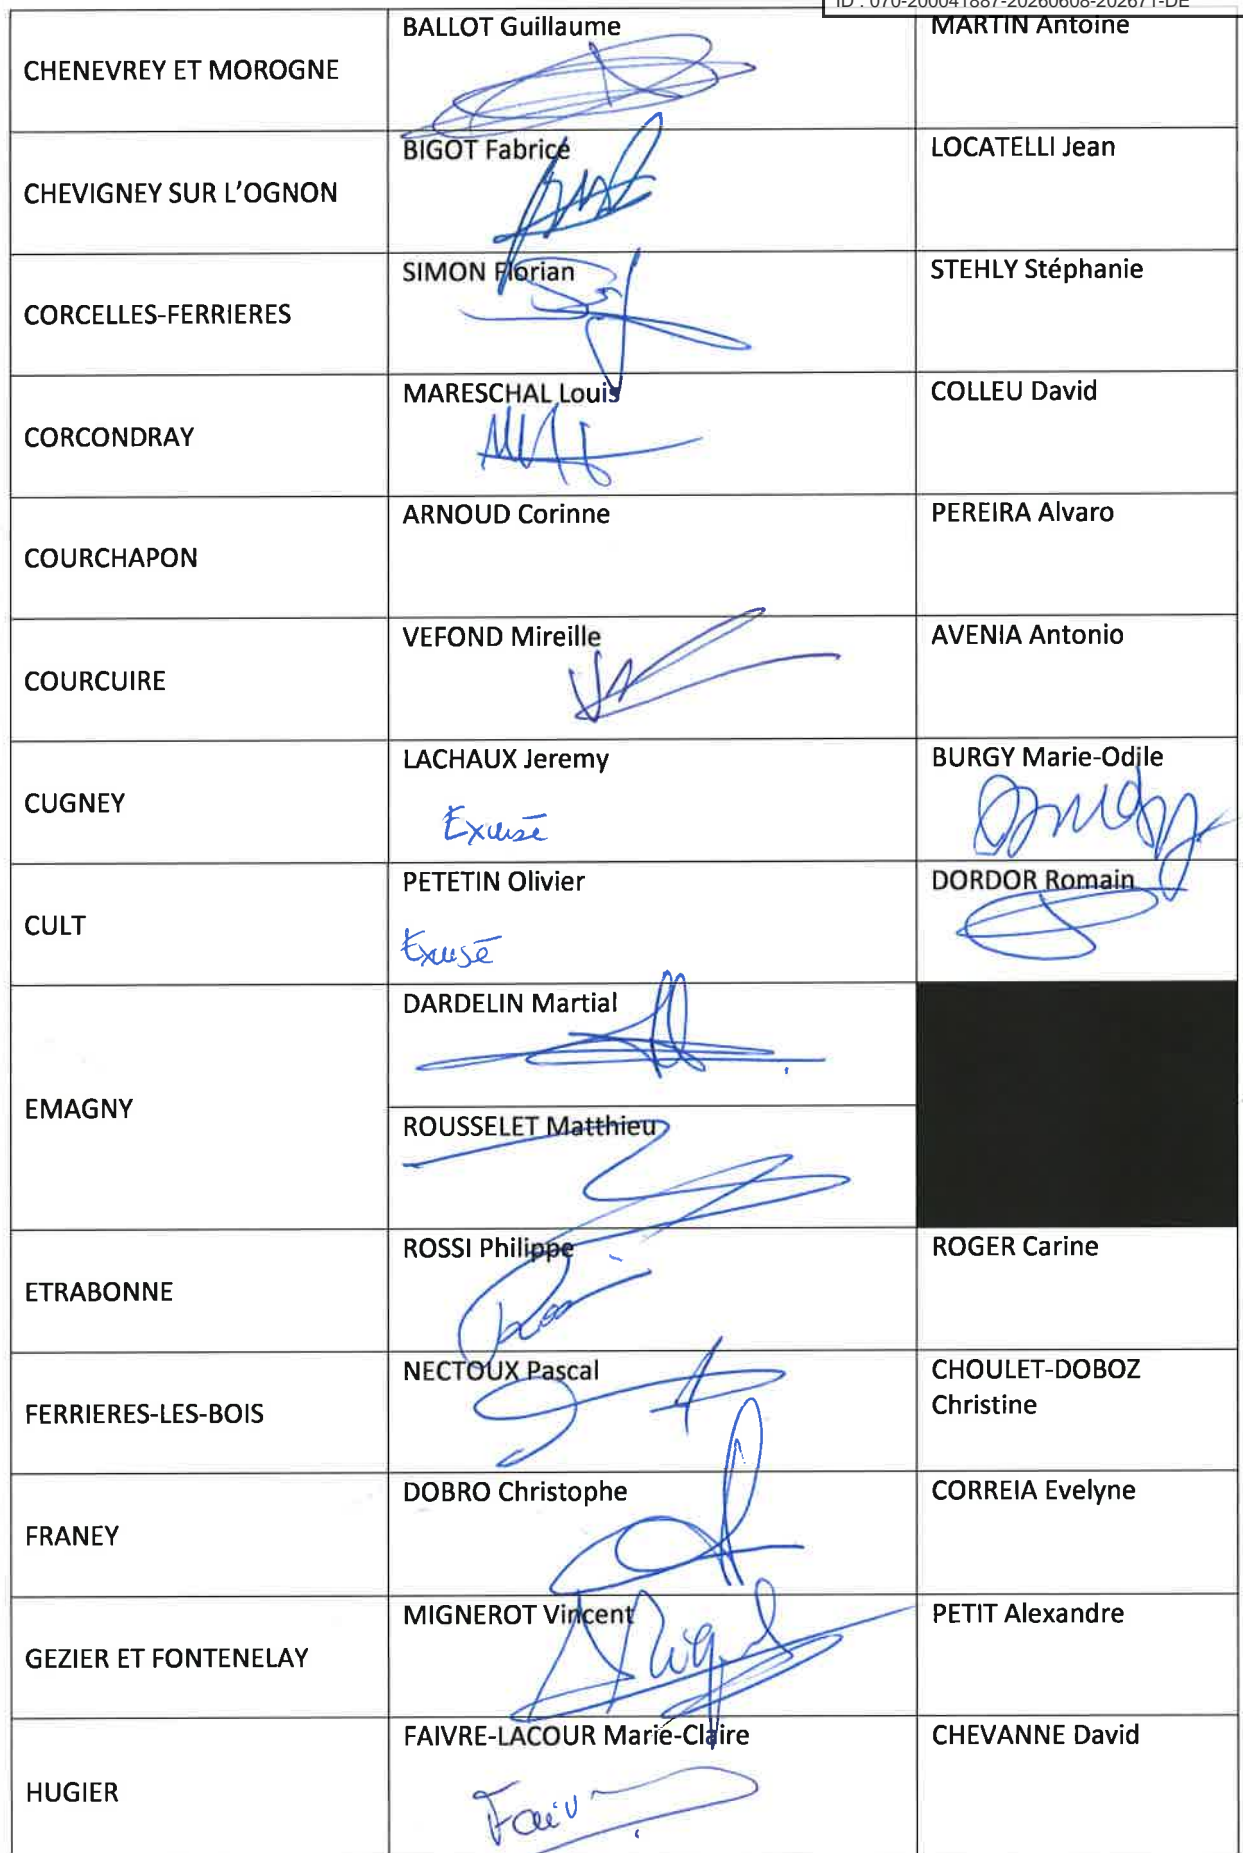 ID : 070-200041887-20260608-202671-DE
CHENEVREY ET MOROGNE
BALLOT Guillaume
MARTIN Antoine
CHEVIGNEY SUR L'OGNON
BIGOT Fabrice
LOCATELLI Jean
CORCELLES-FERRIERES
SIMON Florian
STEHLY Stéphanie
CORCONDRAY
MARESCHAL Louis
COLLEU David
COURCHAPON
ARNOUD Corinne
PEREIRA Alvaro
COURCUIRE
VEFOND Mireille
AVENIA Antonio
CUGNEY
LACHAUX Jeremy
Excusé
BURGY Marie-Odile
CULT
PETETIN Olivier
Excusé
DORDOR Romain
EMAGNY
DARDELIN Martial
ROUSSELET Matthieu
ETRABONNE
ROSSI Philippe
ROGER Carine
FERRIERES-LES-BOIS
NECTOUX Pascal
CHOULET-DOBOZ
Christine
FRANEY
DOBRO Christophe
CORREIA Evelyne
GEZIER ET FONTENELAY
MIGNEROT Vincent
PETIT Alexandre
HUGIER
FAIVRE-LACOUR Marie-Claire
CHEVANNE David